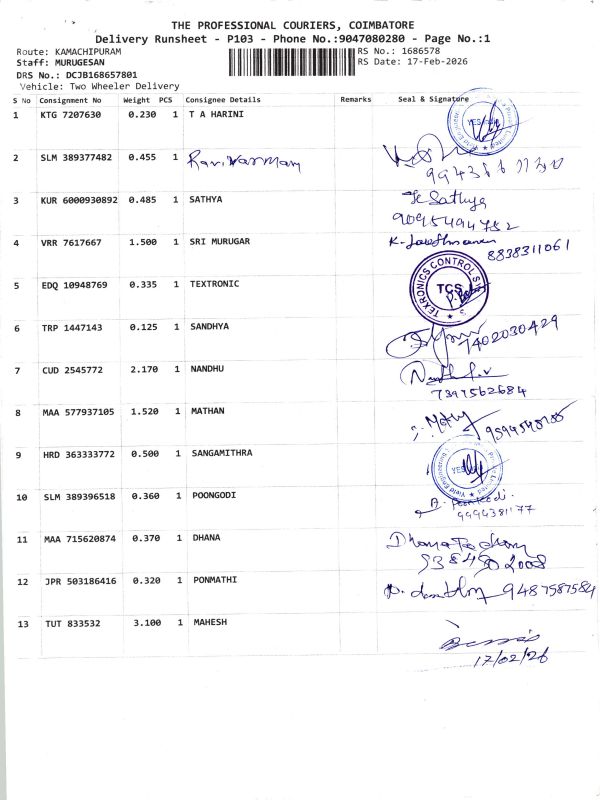 THE PROFESSIONAL COURIERS, COIMBATORE
Delivery Runsheet - P103 - Phone No.:9047080280 - Page No.:1
Route: KAMACHIPURAM RS No.: 1686578
Staff: MURUGESAN RS Date: 17-Feb-2026
DRS No.: DCJB168657801
Vehicle: Two Wheeler Delivery
S No Consignment No Weight PCS Consignee Details Remarks Seal & Signature
1 KTG 7207630 0.230 1 T A HARINI YES
2 SLM 389377482 0.455 1
3 KUR 6000930892 0.485 1 SATHYA Sathya
9095494752
4 VRR 7617667 1.500 1 SRI MURUGAR
8838311061
5 EDQ 10948769 0.335 1 TEXTRONIC TEXRONICS CONTROL TCS
6 TRP 1447143 0.125 1 SANDHYA 7402030429
7 CUD 2545772 2.170 1 NANDHU
7397562684
8 MAA 577937105 1.520 1 MATHAN
9 HRD 363333772 0.500 1 SANGAMITHRA YES
10 SLM 389396518 0.360 1 POONGODI
9994381177
11 MAA 715620874 0.370 1 DHANA
12 JPR 503186416 0.320 1 PONMATHI 9487587584
13 TUT 833532 3.100 1 MAHESH
17/02/26